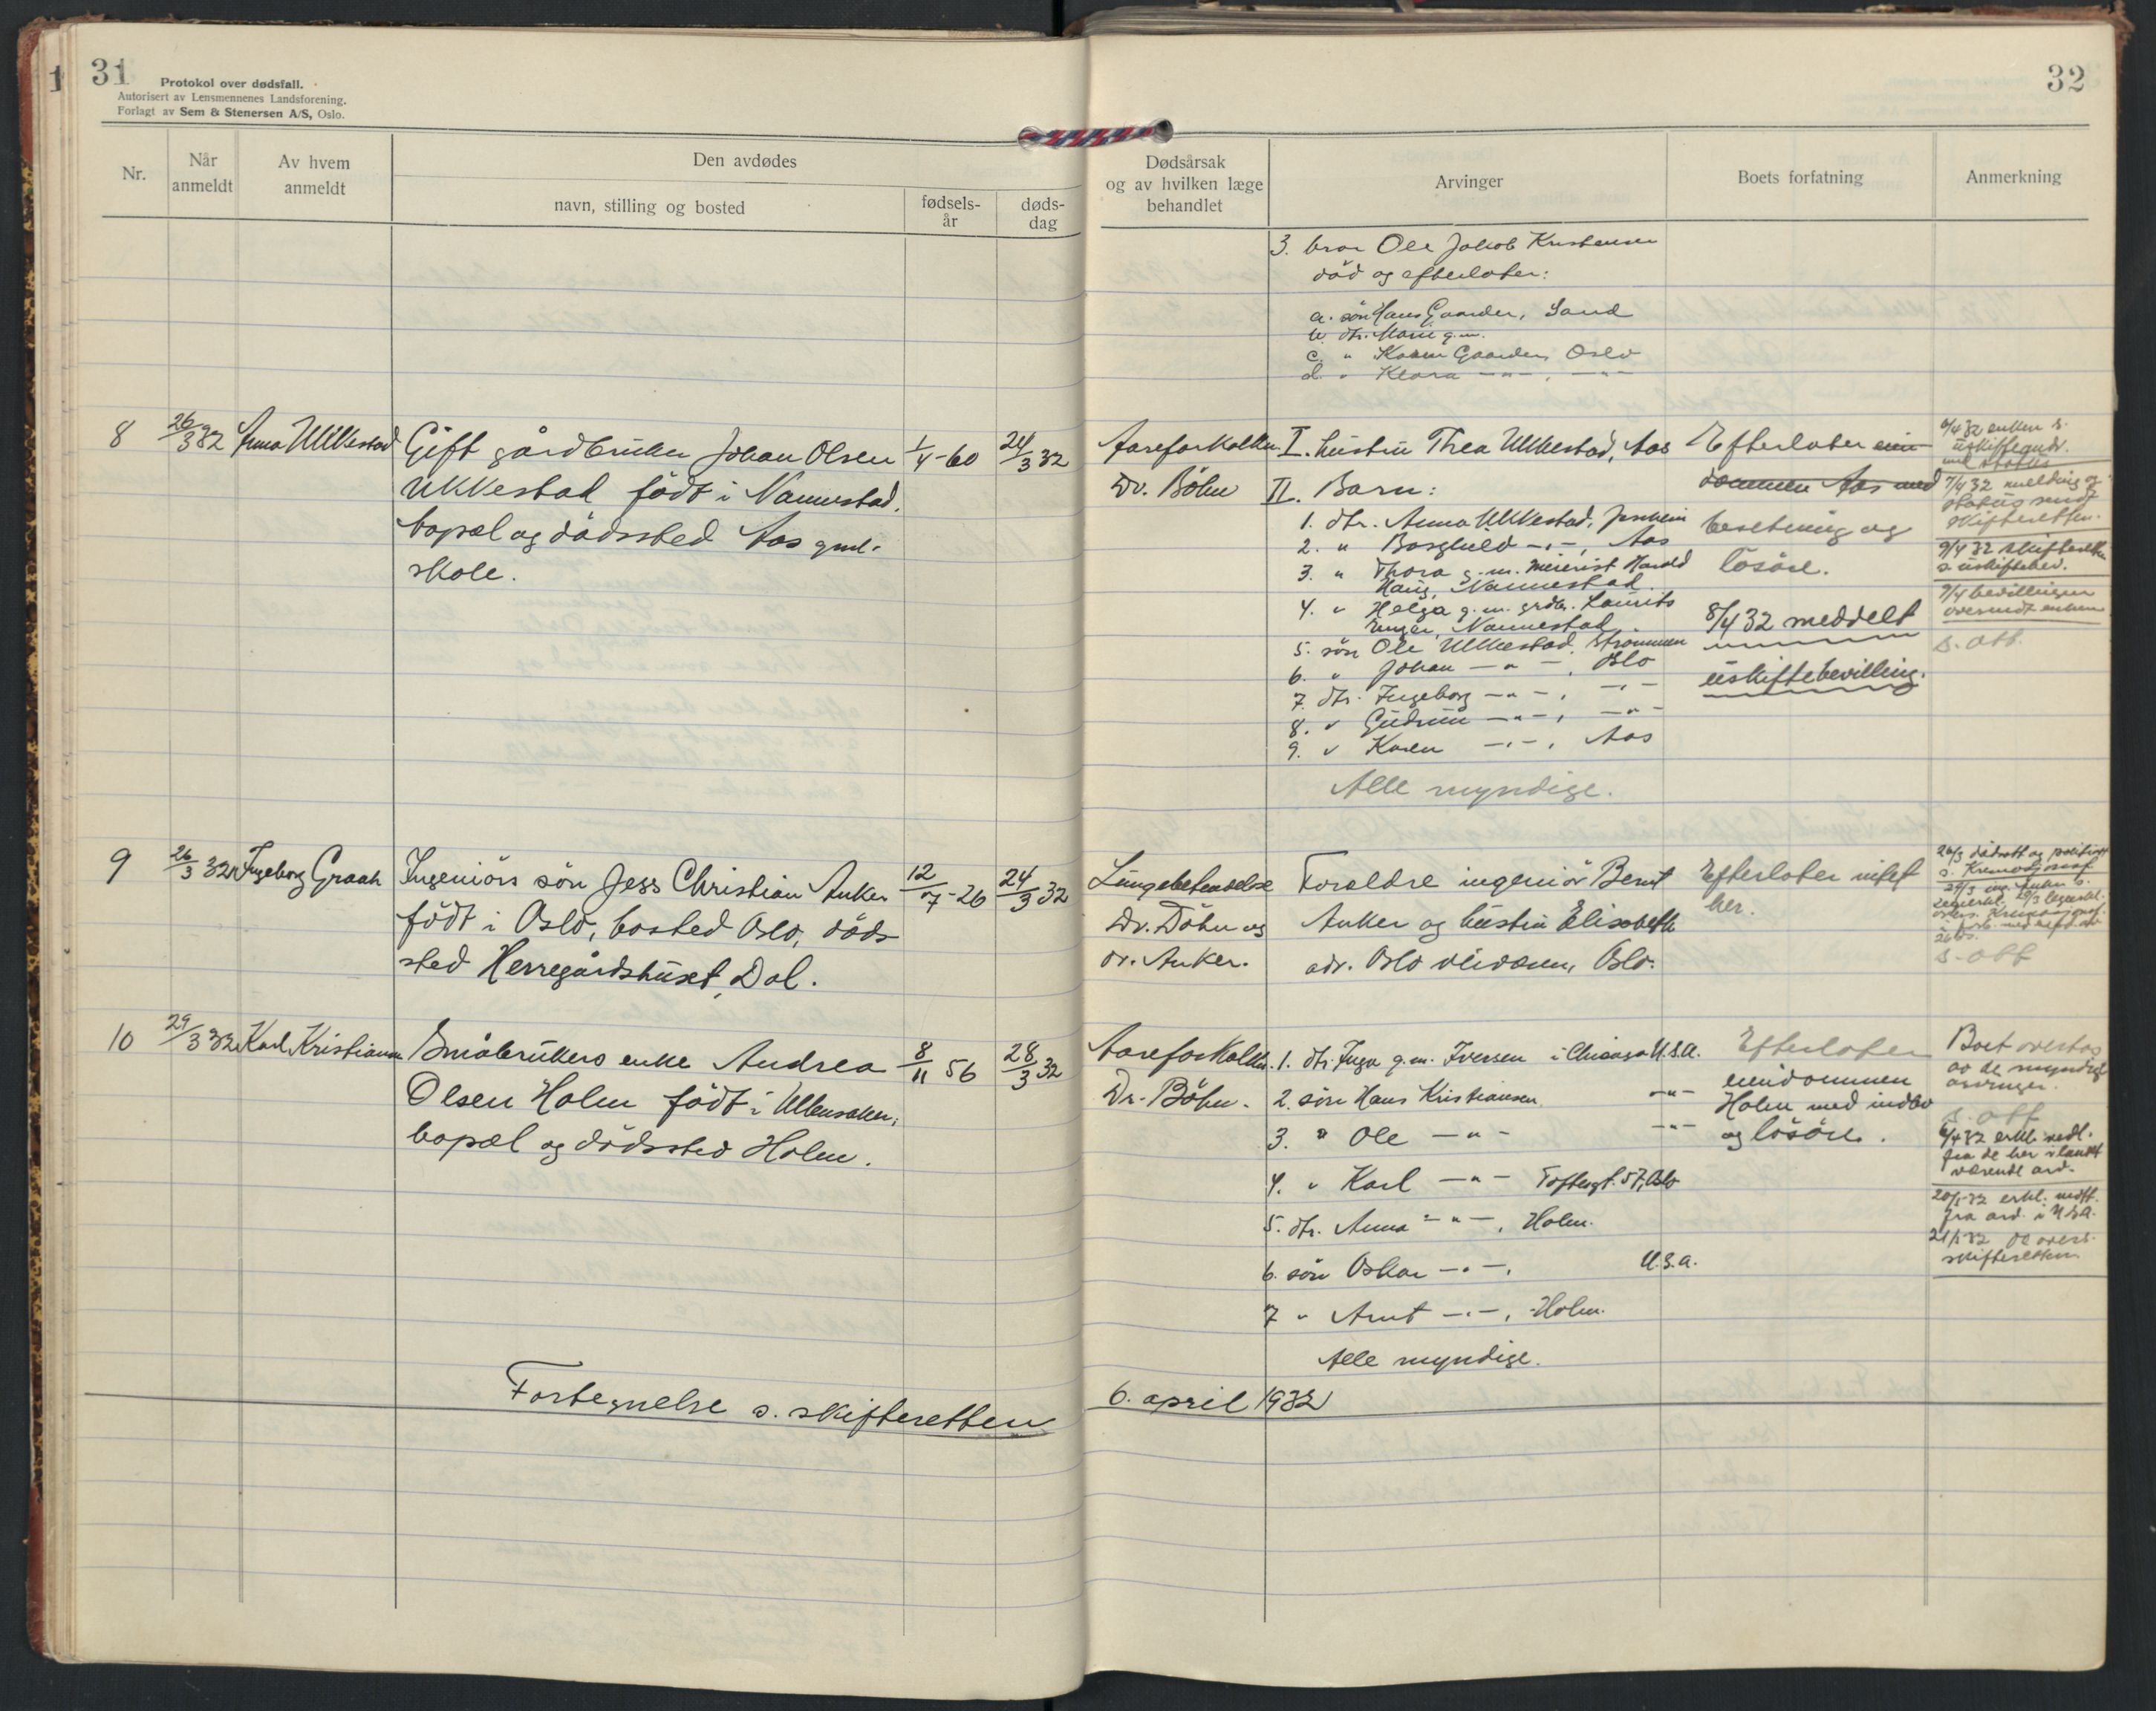 31
Protokol over dødsfall.
Autorisert av Lensmennenes Landsforening.
Forlagt av Sem & Stenersen A/S, Oslo.
Nr.
Når anmeldt
Av hvem anmeldt
Den avdødes
navn, stilling og bosted
fødsels-år
døds-dag
8
26/3 32
Anna Ukkestad
Gift gårdbruker Johan Olsen
Ukkestad født i Nannestad.
bopæl og dødssted Aas gml.
skole.
1/4-60
24/3 32
9
26/3 32
Ingeborg Graah
Ingeniørs søn Jess Christian Anker
født i Oslo, bosted Oslo, døds
sted Herregårdshuset, Dal.
12/7-26
24/3 32
10
29/3 32
Karl Kristiansen
Småbrukers enke Andrea
Olsen Holm født i Ullensaker,
bopæl og dødssted Holm.
8/11 56
28/3 32
Fortegnelse s. skifteretten
32
Dødsårsak
og av hvilken læge
behandlet
Arvinger
Boets forfatning
Anmerkning
3. bror Ole Jakob Kristensen
død og efterlater:
a. søn Hans Gaarder, Sand
b. dtr. Marie g.m.
c. " Karen Gaarder, Oslo
d. " Klara -"-, -"-
Aareforkalkn.
Dr. Böhn
I. hustru Thea Ukkestad, Aas
II. Barn:
1. dtr. Anna Ukkestad, Jessheim
2. " Borghild -"-, Aas
3. " Thora g.m. meierist Harald
Haug, Nannestad.
4. " Helga g.m. grdbr. Laurits
Enger, Nannestad.
5. søn Ole Ukkestad, Strømmen
6. " Johan -"-, Oslo
7. dtr. Ingeborg -"-, -"-
8. " Gudrun -"-, -"-
9. " Karen -"-, Aas
Alle myndige.
Efterlater eien-
dommen Aas med
besetning og
løsøre.
8/4 32 meddelt
uskiftebevilling.
6/4 32 enken s.
uskifteandr.
med status
7/4 32 melding og
status sendt
skifteretten.
9/4 32 skifteretten
s. uskiftebev.
9/4 bevillingen
oversendt enken
s. att.
Lungebetendelse
Dr. Böhn og
dr. Anker.
Foreldre ingeniør Bernt
Anker og hustru Elisabeth
adr. Oslo Oslo.
Efterlater intet
her.
26/3 dødsatt og politiatt
s. Krematoriet
s. att
Aareforkalkn.
Dr. Böhn.
1. dtr. Inga g.m. Iversen i Chicago U.S.A.
2. søn Hans Kristiansen -"-
3. " Ole -"- -"-
4. " Karl -"- Toftesgt. 57, Oslo
5. dtr. Anna -"-, Holm.
6. søn Oskar -"-, U.S.A.
7 " Arnt -"-, Holm.
Alle myndige.
Efterlater
eiendommen
Holm med indbo
og løsøre.
Boet overtas
av de myndige
arvinger.
s. att
6/4 32 erkl. vedl.
fra de her i landet
værende arv.
20/5 32 erkl. mott.
fra arv. i U.S.A.
21/5 32 overs.
skifteretten
6. april 1932